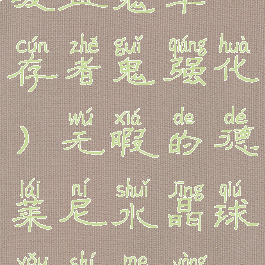 cún zhě guǐ qiáng huà
存者鬼强化
wú xiá de dé
）无暇的德
lái ní shuǐ jīng qiú
莱尼水晶球